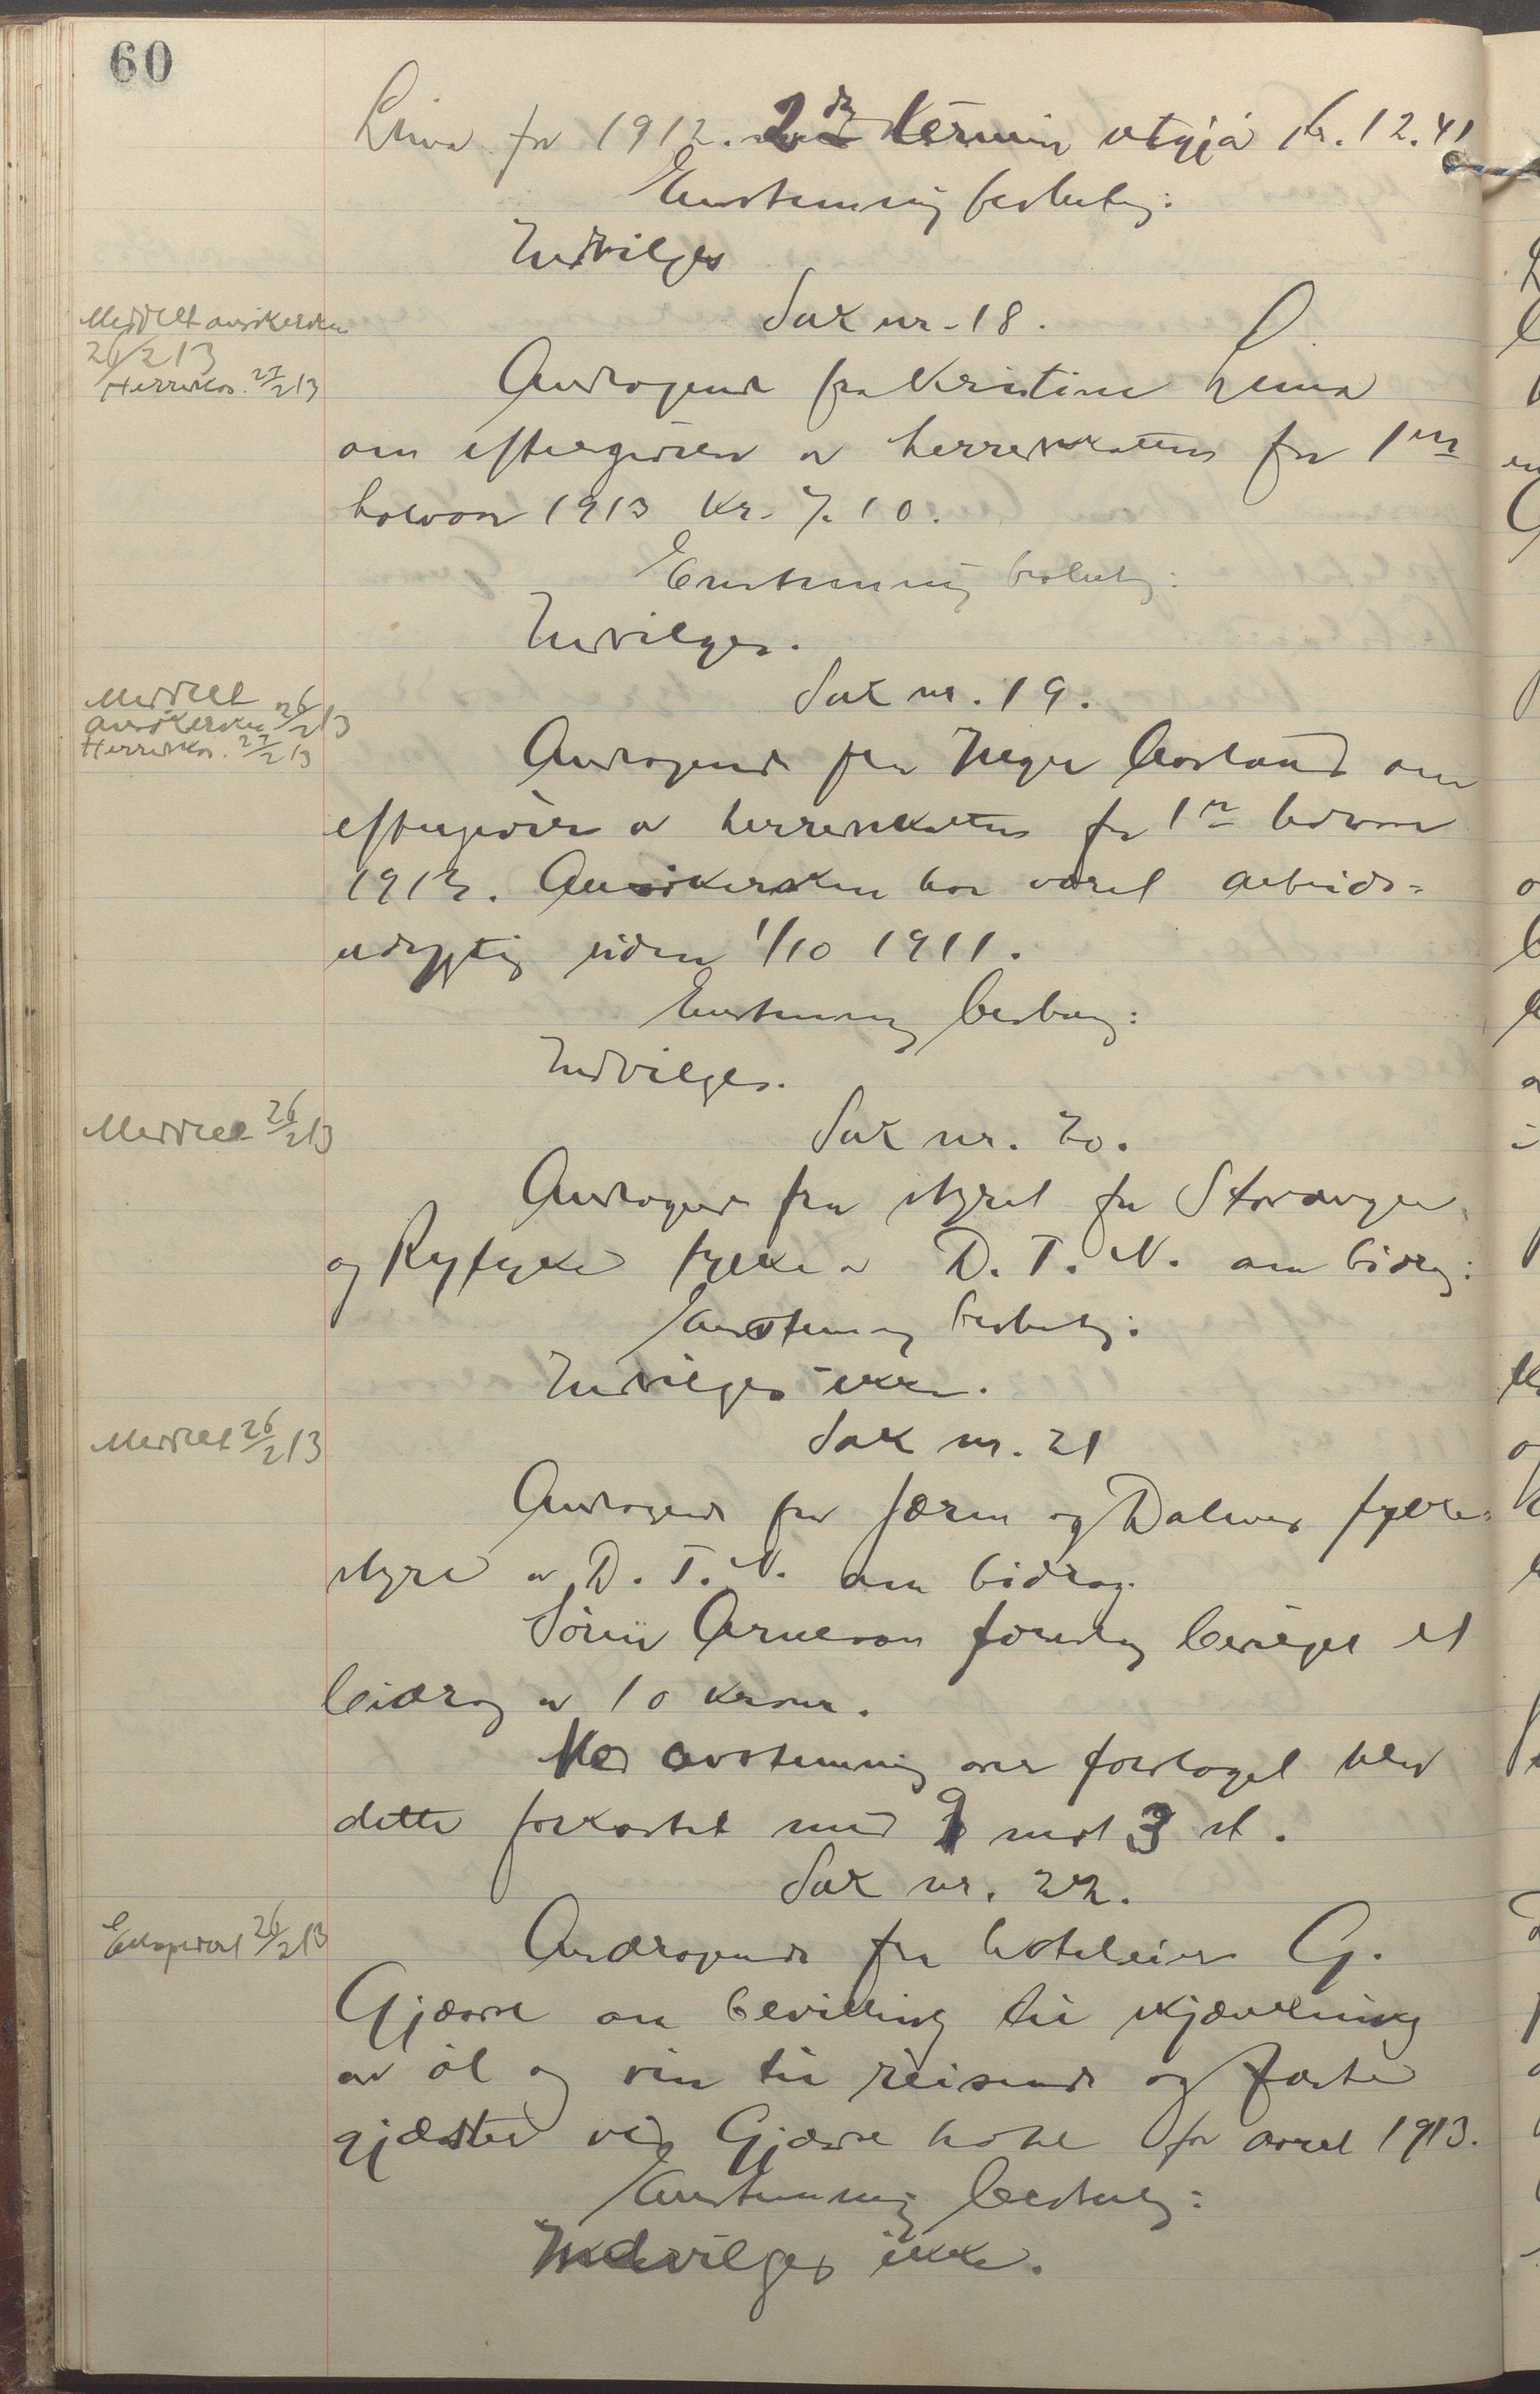 60
Lima for 1912. 2den termin utgjø kr. 12.41
Enstemmig beslutn:
Indvilges
Meddelt ansøkersken
26/2 13
Herredskas. 27/2 13
Sak nr. 18.
Andragende fra Kristine Lima
om eftergivelse av herredsskatten for 1ste
halvaar 1913 Kr. 7.10.
Enstemmig beslutn:
Indvilges.
Meddelt
ansøkersken 26/2 13
Herredskas. 27/2 13
Sak nr. 19.
Andragende fra Inger Aasland om
eftergivelse av herredsskatten for 1ste halvaar
1913. Ansøkersken har været arbeids-
udygtig siden 1/10 1911.
Enstemmig beslutn:
Indvilges.
Meddelt 26/2 13
Sak nr. 20.
Andragende fra styret for Stavanger
og Ryfylke fylke av D. T. N. om bidrag:
Enstemmig beslutn:
Indvilges ikke.
Meddelt 26/2 13
Sak nr. 21
Andragende fra Jæren og Dalenes fylke-
styre av D. T. N. om bidrag.
Søren Arneson foreslog bevilget et
bidrag av 10 kroner.
Ved avstemning over forslaget blev
dette forkastet med 9 mot 3 st.
Sak nr. 22.
Ekspedert 26/2 13
Andragende fra hoteleier G.
Gjæsse om bevilling til skjænkning
av øl og vin til reisende og faste
gjæster ved Gjæsse hotel for aaret 1913.
Enstemmig beslutn:
Indvilges ikke.